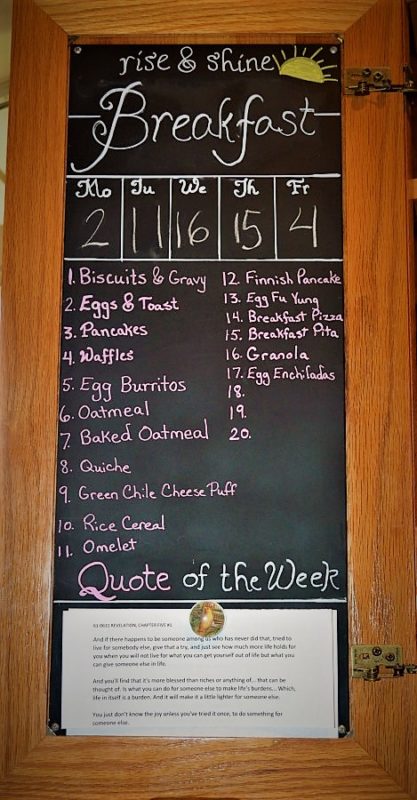 rise & shine
Breakfast
Mo Tu We Th Fr
2 11 16 15 4
1. Biscuits & Gravy
2. Eggs & Toast
3. Pancakes
4. Waffles
5. Egg Burritos
6. Oatmeal
7 Baked Oatmeal
8. Quiche
9. Green Chile Cheese Puff
10. Rice Cereal
11. Omelet
12. Finnish Pancake
13. Egg Fu Yung
14. Breakfast Pizza
15. Breakfast Pita
16. Granola
17. Egg Enchiladas
18.
19.
20.
Quote of the Week
REVELATION, CHAPTER FIVE
And if there happens to be someone among us who has never did that, tried to
live for somebody else, give that a try, and just see how much more life holds for
you when you will not live for what you can get yourself out of life but what you
can give someone else in life.
And you'll find that it's more blessed than riches or anything of... that can be
thought of. Is what you can do for someone else to make life's burdens... Which,
life in itself is a burden. And it will make it a little lighter for someone else.
You just don't know the joy unless you've tried it once, to do something for
someone else.